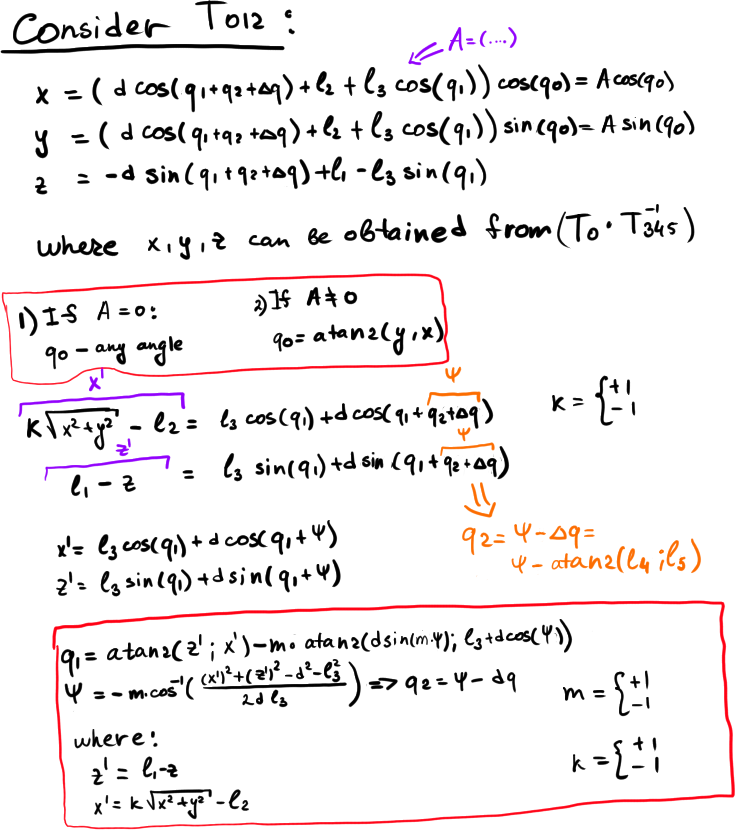 Consider T012 :
A=(....)
x = ( d cos(q1+q2+Δq)+l2 + l3 cos(q1)) cos(q0)= A cos(q0)
y = ( d cos(q1+q2+Δq)+l2 + l3 cos(q1)) sin(q0)= A sin(q0)
z = -d sin(q1+q2+Δq)+l1 - l3 sin(q1)
where x, y, z can be obtained from (T0 · T345^-1)
1) If A=0: 2) If A≠0
q0 - any angle q0= atan2(y, x)
x' ψ
k√(x²+y²) - l2 = l3 cos(q1)+d cos(q1+q2+Δq) k = {+1 -1
z' ψ
l1 - z = l3 sin(q1)+d sin(q1+q2+Δq)
⇓
q2= ψ-Δq=
ψ-atan2(l4;l5)
x'= l3 cos(q1)+d cos(q1+ψ)
z'= l3 sin(q1)+d sin(q1+ψ)
q1= atan2(z'; x')-m· atan2(d sin(m·ψ); l3+d cos(ψ))
ψ = -m·cos^-1( ((x')²+(z')²-d²-l3²) / (2d l3) ) => q2=ψ-dq m = {+1 -1
where: k = {+1 -1
z' = l1-z
x'= k√(x²+y²) - l2